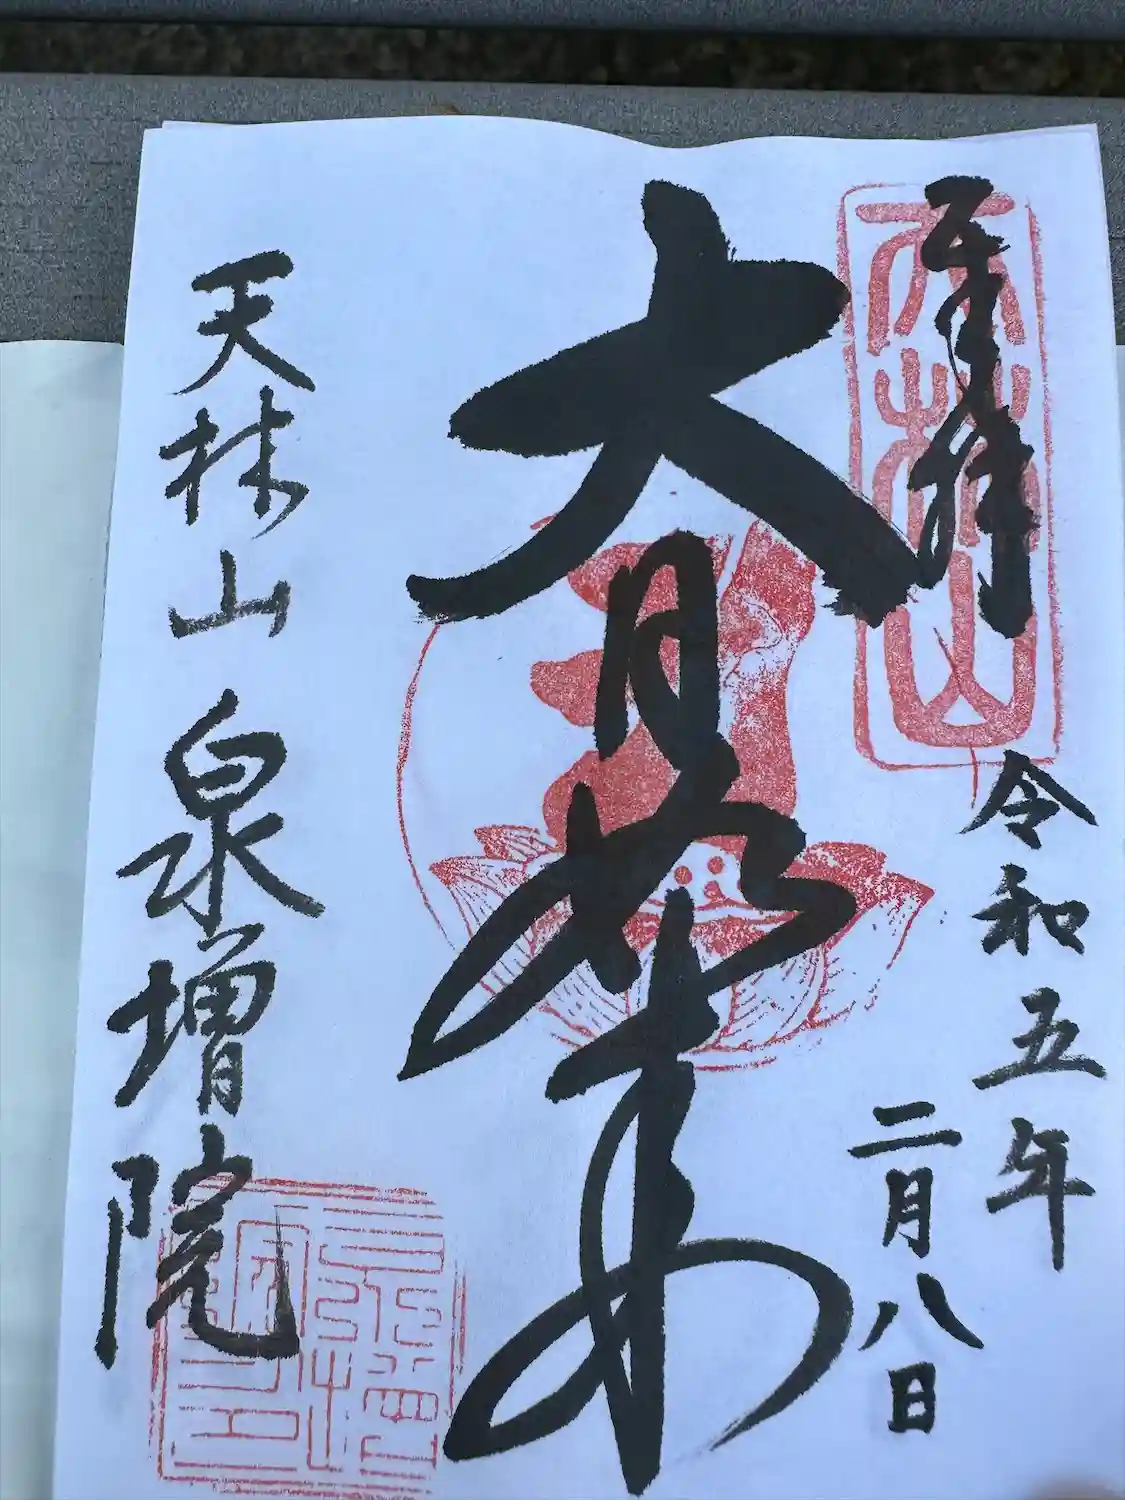 奉拝
天林山
令和五年
二月八日
大日如来
天林山 泉増院